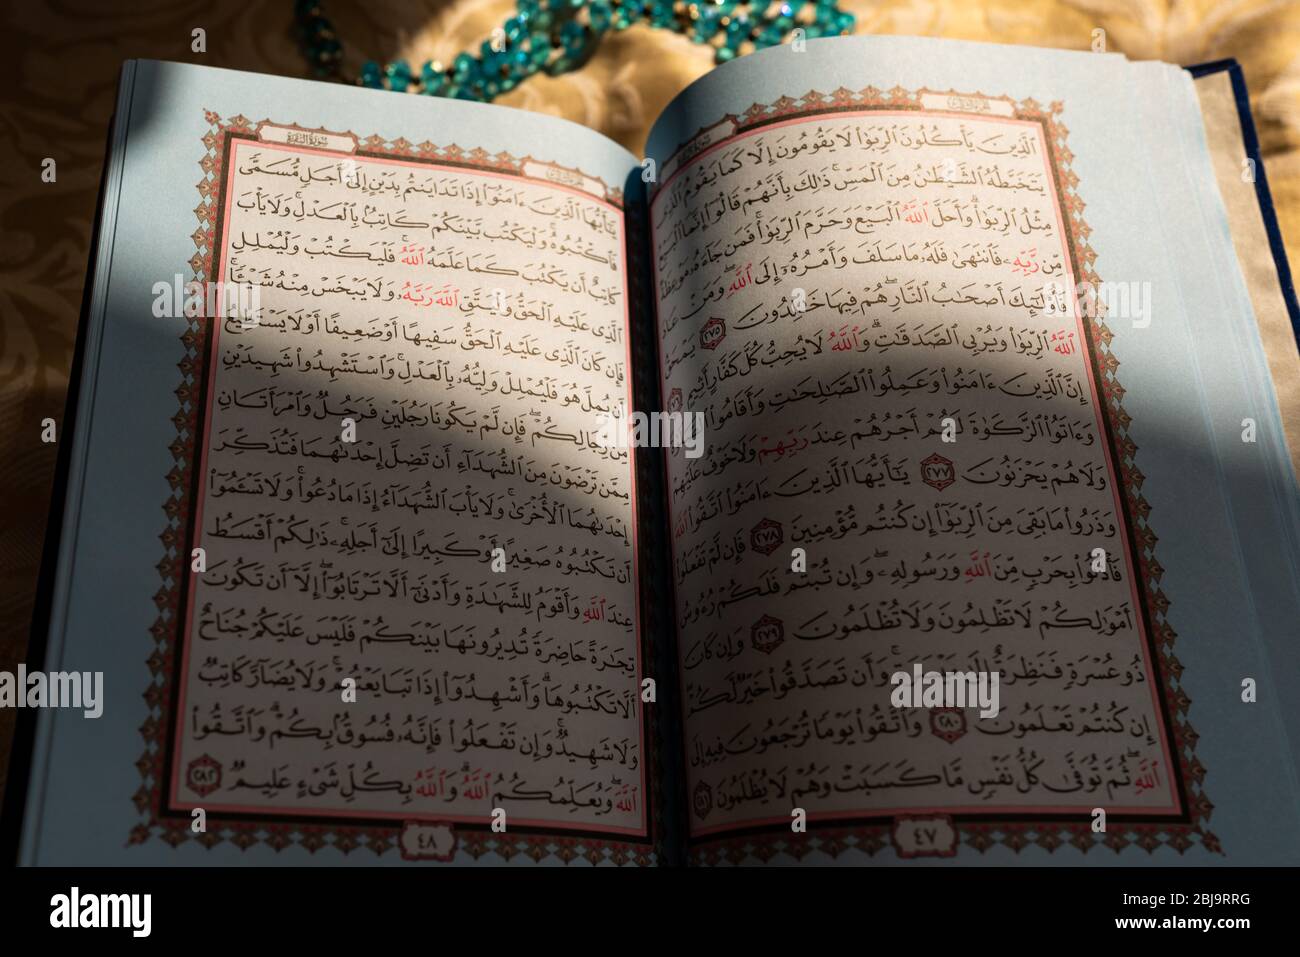 سُورَةُ البَقَرَة
ٱلَّذِينَ يَأْكُلُونَ ٱلرِّبَوٰا۟ لَا يَقُومُونَ إِلَّا كَمَا يَقُومُ ٱلَّذِى
يَتَخَبَّطُهُ ٱلشَّيْطَٰنُ مِنَ ٱلْمَسِّ ۚ ذَٰلِكَ بِأَنَّهُمْ قَالُوٓا۟ إِنَّمَا ٱلْبَيْعُ
مِثْلُ ٱلرِّبَوٰا۟ ۗ وَأَحَلَّ ٱللَّهُ ٱلْبَيْعَ وَحَرَّمَ ٱلرِّبَوٰا۟ ۚ فَمَن جَآءَهُۥ مَوْعِظَةٌ
مِّن رَّبِّهِۦ فَٱنتَهَىٰ فَلَهُۥ مَا سَلَفَ وَأَمْرُهُۥٓ إِلَى ٱللَّهِ ۖ وَمَنْ عَادَ
فَأُو۟لَٰٓئِكَ أَصْحَٰبُ ٱلنَّارِ ۖ هُمْ فِيهَا خَٰلِدُونَ ٢٧٥ يَمْحَقُ
ٱللَّهُ ٱلرِّبَوٰا۟ وَيُرْبِى ٱلصَّدَقَٰتِ ۗ وَٱللَّهُ لَا يُحِبُّ كُلَّ كَفَّارٍ أَثِيمٍ ٢٧٦
إِنَّ ٱلَّذِينَ ءَامَنُوا۟ وَعَمِلُوا۟ ٱلصَّٰلِحَٰتِ وَأَقَامُوا۟ ٱلصَّلَوٰةَ
وَءَاتَوُا۟ ٱلزَّكَوٰةَ لَهُمْ أَجْرُهُمْ عِندَ رَبِّهِمْ وَلَا خَوْفٌ عَلَيْهِمْ
وَلَا هُمْ يَحْزَنُونَ ٢٧٧ يَٰٓأَيُّهَا ٱلَّذِينَ ءَامَنُوا۟ ٱتَّقُوا۟ ٱللَّهَ
وَذَرُوا۟ مَا بَقِىَ مِنَ ٱلرِّبَوٰٓا۟ إِن كُنتُم مُّؤْمِنِينَ ٢٧٨ فَإِن لَّمْ تَفْعَلُوا۟
فَأْذَنُوا۟ بِحَرْبٍ مِّنَ ٱللَّهِ وَرَسُولِهِۦ ۖ وَإِن تُبْتُمْ فَلَكُمْ رُءُوسُ
أَمْوَٰلِكُمْ لَا تَظْلِمُونَ وَلَا تُظْلَمُونَ ٢٧٩ وَإِن كَانَ
ذُو عُسْرَةٍ فَنَظِرَةٌ إِلَىٰ مَيْسَرَةٍ ۚ وَأَن تَصَدَّقُوا۟ خَيْرٌ لَّكُمْ ۖ
إِن كُنتُمْ تَعْلَمُونَ ٢٨٠ وَٱتَّقُوا۟ يَوْمًا تُرْجَعُونَ فِيهِ إِلَى
ٱللَّهِ ۖ ثُمَّ تُوَفَّىٰ كُلُّ نَفْسٍ مَّا كَسَبَتْ وَهُمْ لَا يُظْلَمُونَ ٢٨١
٤٧
سُورَةُ البَقَرَة
يَٰٓأَيُّهَا ٱلَّذِينَ ءَامَنُوٓا۟ إِذَا تَدَايَنتُم بِدَيْنٍ إِلَىٰٓ أَجَلٍ مُّسَمًّى
فَٱكْتُبُوهُ ۚ وَلْيَكْتُب بَّيْنَكُمْ كَاتِبٌۢ بِٱلْعَدْلِ ۚ وَلَا يَأْبَ
كَاتِبٌ أَن يَكْتُبَ كَمَا عَلَّمَهُ ٱللَّهُ ۚ فَلْيَكْتُبْ وَلْيُمْلِلِ
ٱلَّذِى عَلَيْهِ ٱلْحَقُّ وَلْيَتَّقِ ٱللَّهَ رَبَّهُۥ وَلَا يَبْخَسْ مِنْهُ شَيْـًٔا ۚ
فَإِن كَانَ ٱلَّذِى عَلَيْهِ ٱلْحَقُّ سَفِيهًا أَوْ ضَعِيفًا أَوْ لَا يَسْتَطِيعُ
أَن يُمِلَّ هُوَ فَلْيُمْلِلْ وَلِيُّهُۥ بِٱلْعَدْلِ ۚ وَٱسْتَشْهِدُوا۟ شَهِيدَيْنِ
مِن رِّجَالِكُمْ ۖ فَإِن لَّمْ يَكُونَا رَجُلَيْنِ فَرَجُلٌ وَٱمْرَأَتَانِ
مِمَّن تَرْضَوْنَ مِنَ ٱلشُّهَدَآءِ أَن تَضِلَّ إِحْدَىٰهُمَا فَتُذَكِّرَ
إِحْدَىٰهُمَا ٱلْأُخْرَىٰ ۚ وَلَا يَأْبَ ٱلشُّهَدَآءُ إِذَا مَا دُعُوا۟ ۚ وَلَا تَسْـَٔمُوٓا۟
أَن تَكْتُبُوهُ صَغِيرًا أَوْ كَبِيرًا إِلَىٰٓ أَجَلِهِۦ ۚ ذَٰلِكُمْ أَقْسَطُ
عِندَ ٱللَّهِ وَأَقْوَمُ لِلشَّهَٰدَةِ وَأَدْنَىٰٓ أَلَّا تَرْتَابُوٓا۟ ۖ إِلَّآ أَن تَكُونَ
تِجَٰرَةً حَاضِرَةً تُدِيرُونَهَا بَيْنَكُمْ فَلَيْسَ عَلَيْكُمْ جُنَاحٌ
أَلَّا تَكْتُبُوهَا ۗ وَأَشْهِدُوٓا۟ إِذَا تَبَايَعْتُمْ ۚ وَلَا يُضَآرَّ كَاتِبٌ
وَلَا شَهِيدٌ ۚ وَإِن تَفْعَلُوا۟ فَإِنَّهُۥ فُسُوقٌۢ بِكُمْ ۗ وَٱتَّقُوا۟
ٱللَّهَ ۖ وَيُعَلِّمُكُمُ ٱللَّهُ ۗ وَٱللَّهُ بِكُلِّ شَىْءٍ عَلِيمٌ ٢٨٢
٤٨
alamy
Image ID: 2BJ9RRG
www.alamy.com